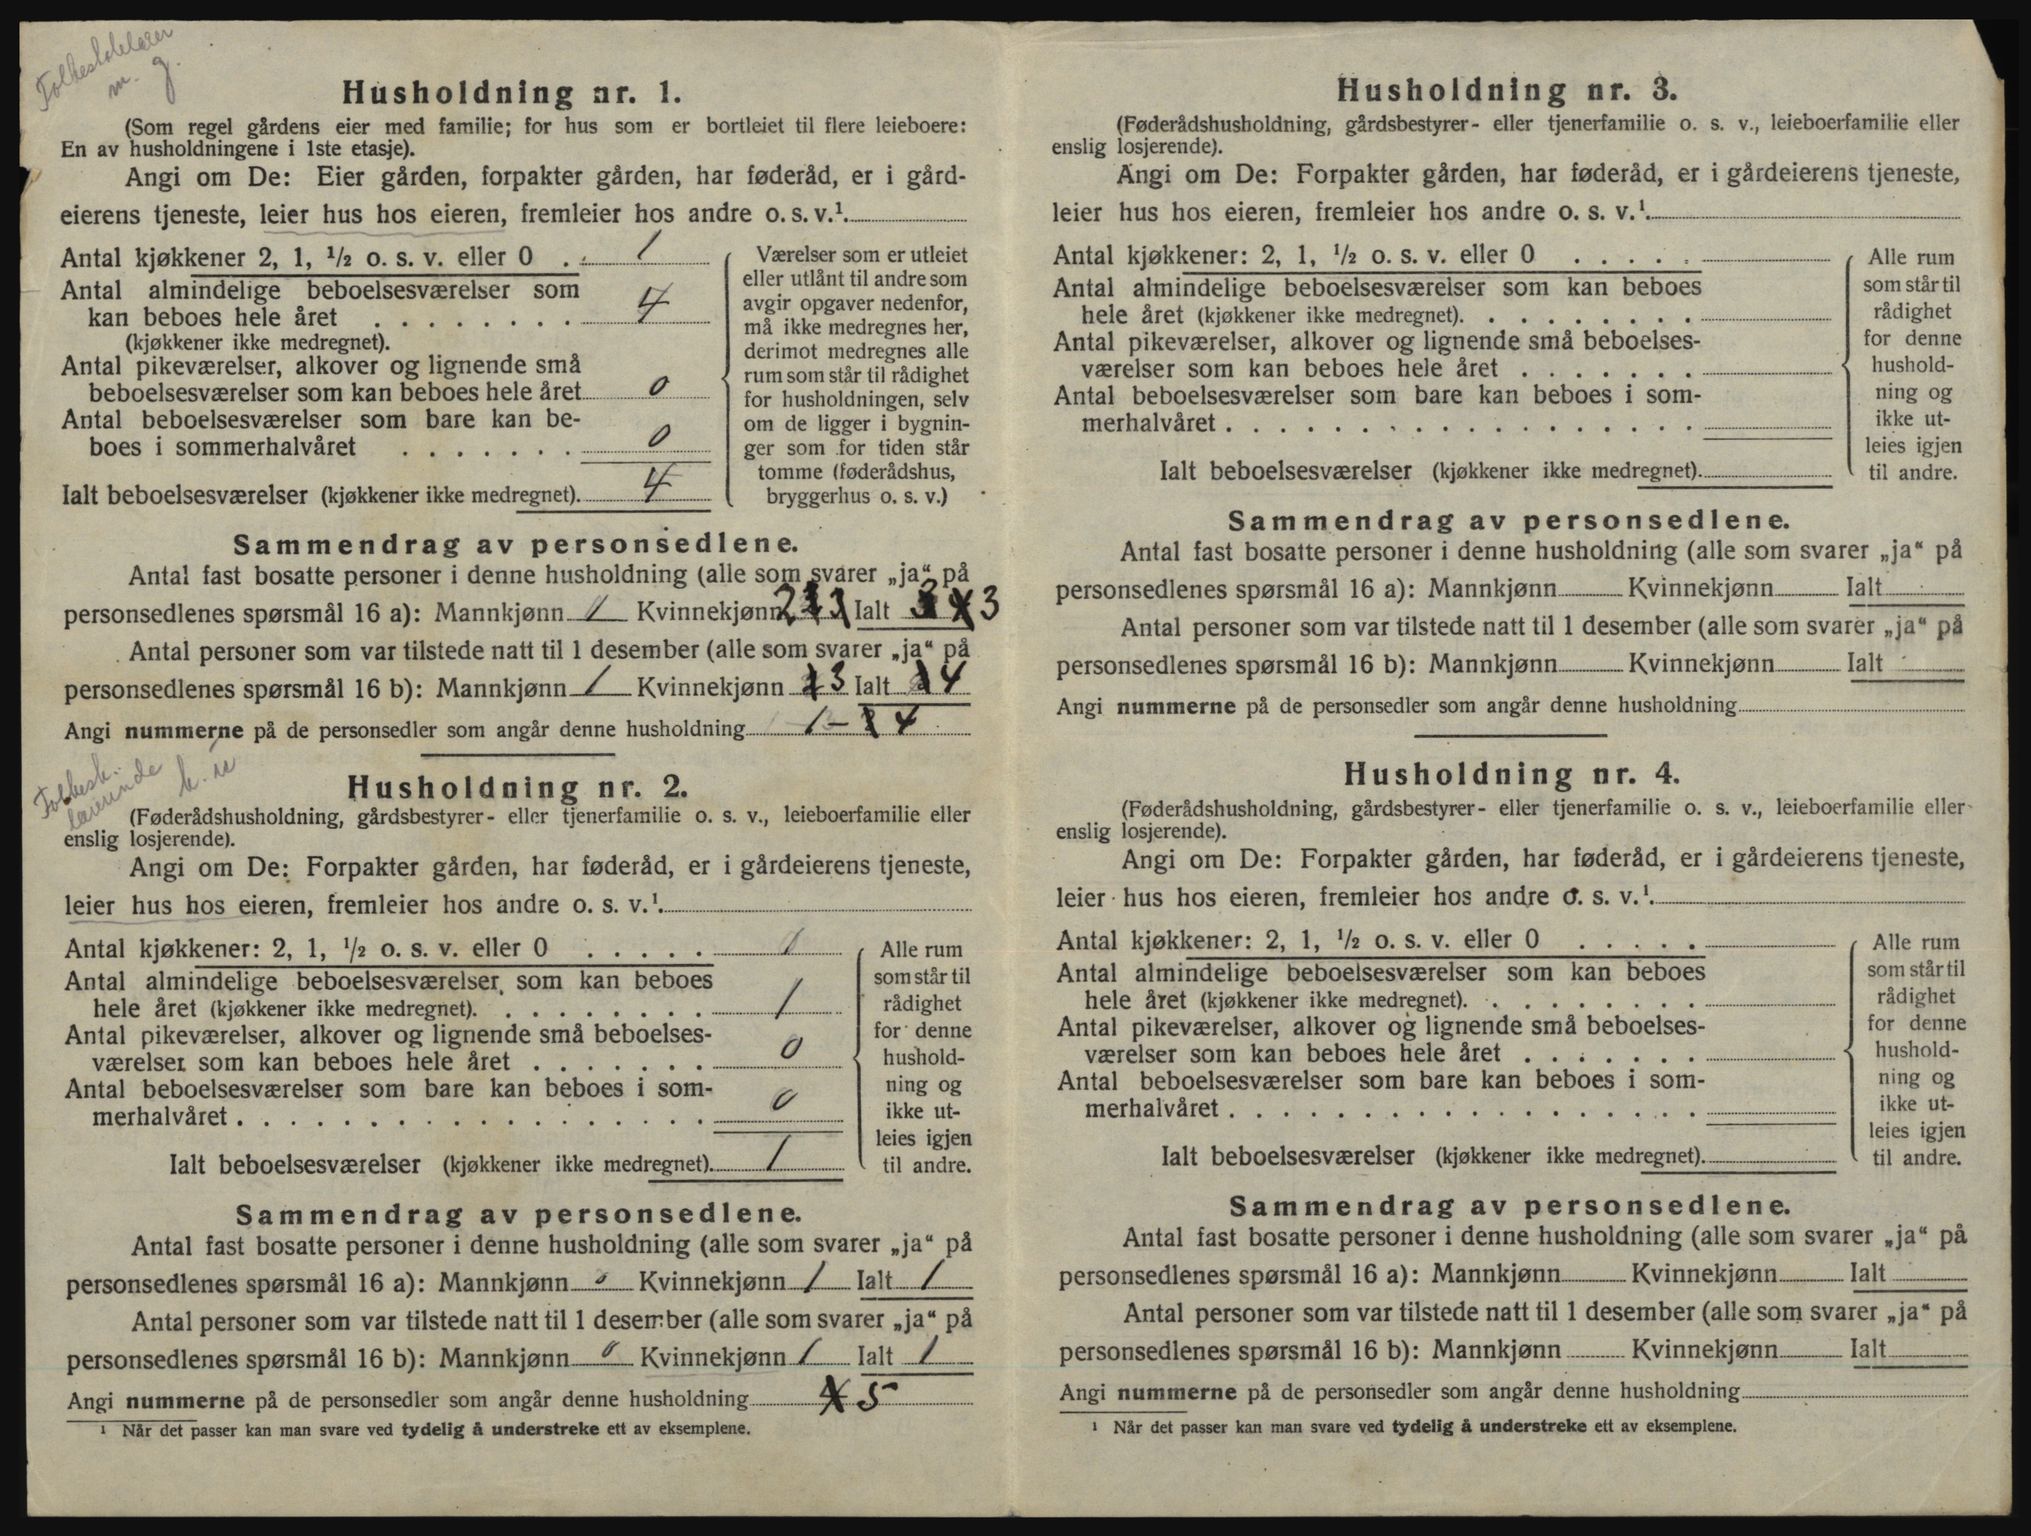 Folkeskolelærer
m. g.
Husholdning nr. 1.
(Som regel gårdens eier med familie; for hus som er bortleiet til flere leieboere:
En av husholdningene i 1ste etasje).
Angi om De: Eier gården, forpakter gården, har føderåd, er i gård-
eierens tjeneste, leier hus hos eieren, fremleier hos andre o. s. v.¹.
Antal kjøkkener 2, 1, ½ o. s. v. eller 0 . 1
Antal almindelige beboelsesværelser som
kan beboes hele året . . . . . . . . 4
(kjøkkener ikke medregnet).
Antal pikeværelser, alkover og lignende små
beboelsesværelser som kan beboes hele året 0
Antal beboelsesværelser som bare kan be-
boes i sommerhalvåret . . . . . . . 0
Ialt beboelsesværelser (kjøkkener ikke medregnet). 4
Værelser som er utleiet
eller utlånt til andre som
avgir opgaver nedenfor,
må ikke medregnes her,
derimot medregnes alle
rum som står til rådighet
for husholdningen, selv
om de ligger i bygnin-
ger som for tiden står
tomme (føderådshus,
bryggerhus o. s. v.)
Sammendrag av personsedlene.
Antal fast bosatte personer i denne husholdning (alle som svarer „ja“ på
personsedlenes spørsmål 16 a): Mannkjønn 1 Kvinnekjønn 2 Ialt 3
Antal personer som var tilstede natt til 1 desember (alle som svarer „ja“ på
personsedlenes spørsmål 16 b): Mannkjønn 1 Kvinnekjønn 3 Ialt 4
Angi nummerne på de personsedler som angår denne husholdning 1 – 4
Folkesk.
lærerinde k. u
Husholdning nr. 2.
(Føderådshusholdning, gårdsbestyrer- eller tjenerfamilie o. s. v., leieboerfamilie eller
enslig losjerende).
Angi om De: Forpakter gården, har føderåd, er i gårdeierens tjeneste,
leier hus hos eieren, fremleier hos andre o. s. v.¹.
Antal kjøkkener: 2, 1, ½ o. s. v. eller 0 . . . . . 0
Antal almindelige beboelsesværelser som kan beboes
hele året (kjøkkener ikke medregnet). . . . . . . . . 1
Antal pikeværelser, alkover og lignende små beboelses-
værelser som kan beboes hele året . . . . . . . 0
Antal beboelsesværelser som bare kan beboes i som-
merhalvåret . . . . . . . . . . . . . . . . . . 0
Ialt beboelsesværelser (kjøkkener ikke medregnet). 1
Alle rum
som står til
rådighet
for denne
hushold-
ning og
ikke ut-
leies igjen
til andre.
Sammendrag av personsedlene.
Antal fast bosatte personer i denne husholdning (alle som svarer „ja“ på
personsedlenes spørsmål 16 a): Mannkjønn 0 Kvinnekjønn 1 Ialt 1
Antal personer som var tilstede natt til 1 desember (alle som svarer „ja“ på
personsedlenes spørsmål 16 b): Mannkjønn 0 Kvinnekjønn 1 Ialt 1
Angi nummerne på de personsedler som angår denne husholdning 5
¹ Når det passer kan man svare ved tydelig å understreke ett av eksemplene.
Husholdning nr. 3.
(Føderådshusholdning, gårdsbestyrer- eller tjenerfamilie o. s. v., leieboerfamilie eller
enslig losjerende).
Angi om De: Forpakter gården, har føderåd, er i gårdeierens tjeneste,
leier hus hos eieren, fremleier hos andre o. s. v.¹.
Antal kjøkkener: 2, 1, ½ o. s. v. eller 0 . . . . .
Antal almindelige beboelsesværelser som kan beboes
hele året (kjøkkener ikke medregnet). . . . . . . . .
Antal pikeværelser, alkover og lignende små beboelses-
værelser som kan beboes hele året . . . . . . .
Antal beboelsesværelser som bare kan beboes i som-
merhalvåret . . . . . . . . . . . . . . . . . .
Ialt beboelsesværelser (kjøkkener ikke medregnet).
Alle rum
som står til
rådighet
for denne
hushold-
ning og
ikke ut-
leies igjen
til andre.
Sammendrag av personsedlene.
Antal fast bosatte personer i denne husholdning (alle som svarer „ja“ på
personsedlenes spørsmål 16 a): Mannkjønn Kvinnekjønn Ialt
Antal personer som var tilstede natt til 1 desember (alle som svarer „ja“ på
personsedlenes spørsmål 16 b): Mannkjønn Kvinnekjønn Ialt
Angi nummerne på de personsedler som angår denne husholdning
Husholdning nr. 4.
(Føderådshusholdning, gårdsbestyrer- eller tjenerfamilie o. s. v., leieboerfamilie eller
enslig losjerende).
Angi om De: Forpakter gården, har føderåd, er i gårdeierens tjeneste,
leier hus hos eieren, fremleier hos andre o. s. v.¹.
Antal kjøkkener: 2, 1, ½ o. s. v. eller 0 . . . . .
Antal almindelige beboelsesværelser som kan beboes
hele året (kjøkkener ikke medregnet). . . . . . . . .
Antal pikeværelser, alkover og lignende små beboelses-
værelser som kan beboes hele året . . . . . . .
Antal beboelsesværelser som bare kan beboes i som-
merhalvåret . . . . . . . . . . . . . . . . . .
Ialt beboelsesværelser (kjøkkener ikke medregnet).
Alle rum
som står til
rådighet
for denne
hushold-
ning og
ikke ut-
leies igjen
til andre.
Sammendrag av personsedlene.
Antal fast bosatte personer i denne husholdning (alle som svarer „ja“ på
personsedlenes spørsmål 16 a): Mannkjønn Kvinnekjønn Ialt
Antal personer som var tilstede natt til 1 desember (alle som svarer „ja“ på
personsedlenes spørsmål 16 b): Mannkjønn Kvinnekjønn Ialt
Angi nummerne på de personsedler som angår denne husholdning
¹ Når det passer kan man svare ved tydelig å understreke ett av eksemplene.